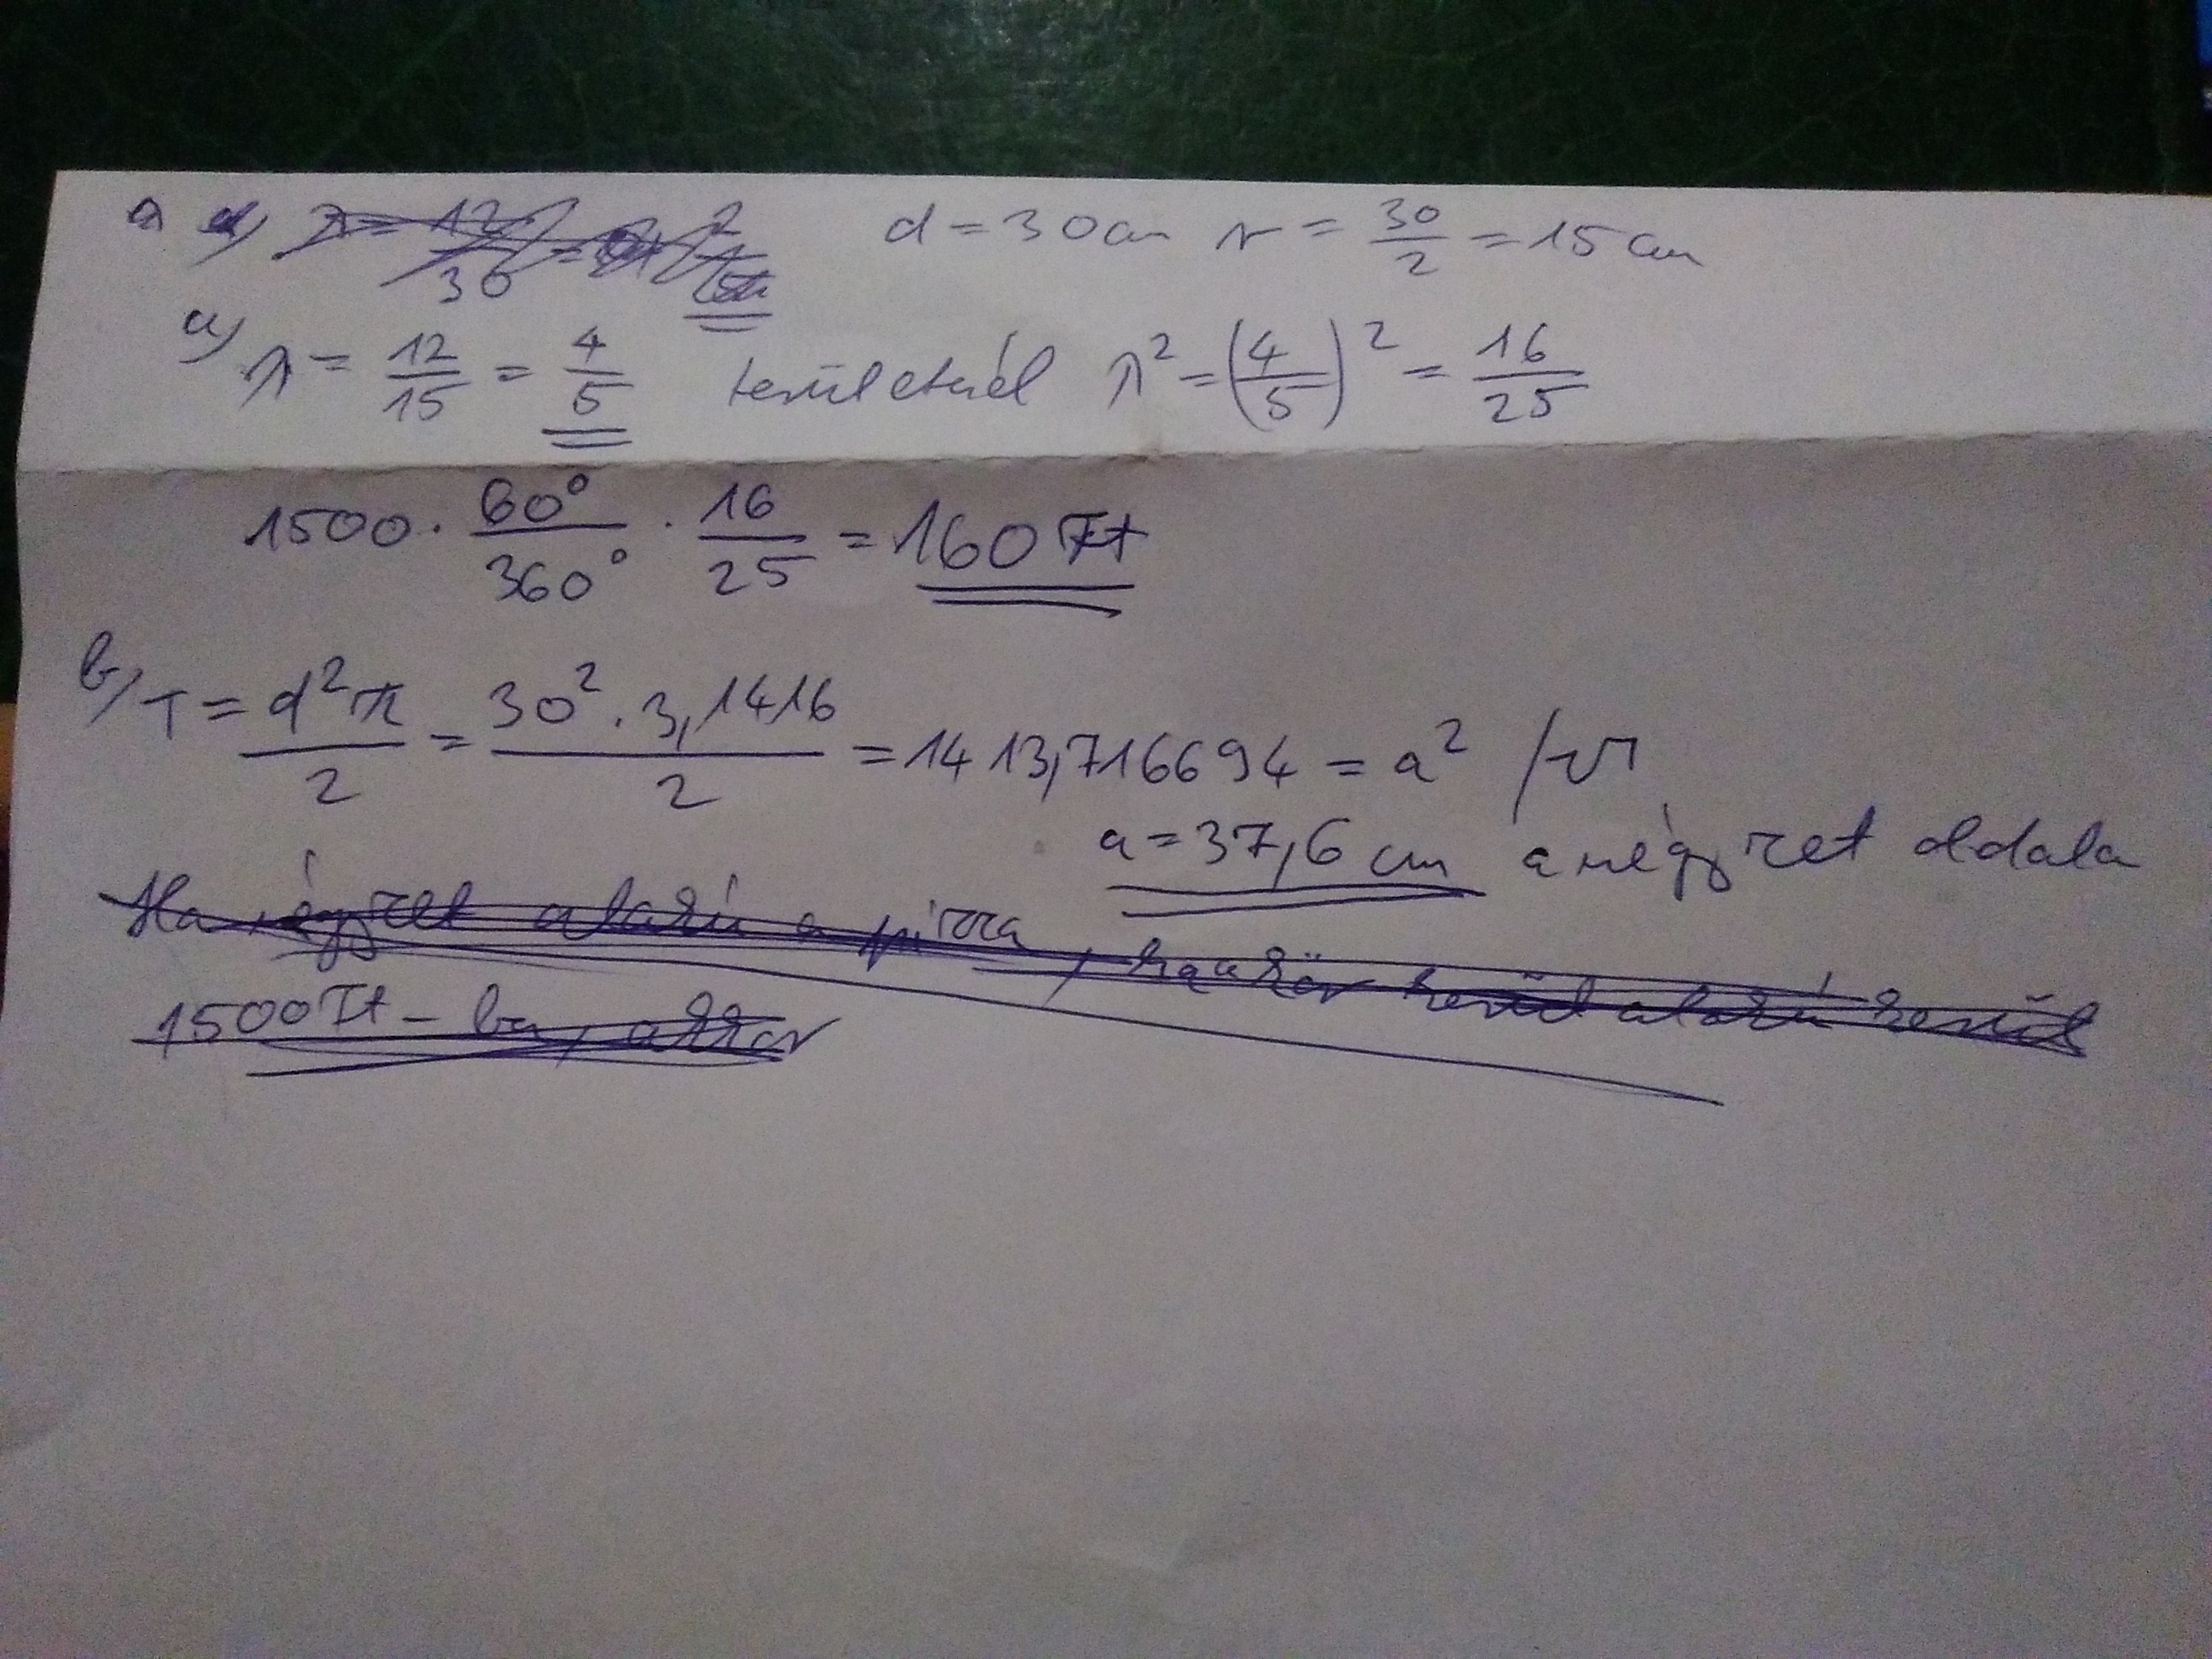 a a) λ = 12/30 = 2/5 d = 30 cm r = 30/2 = 15 cm
a) λ = 12/15 = 4/5 területnél λ² = (4/5)² = 16/25
1500 · 60°/360° · 16/25 = 160 Ft
b) T = d²π/2 = 30² · 3,1416/2 = 1413,716694 = a² /√
a = 37,6 cm a négyzet oldala
Ha négyzet alakú a pizza,
1500 Ft-ba, akkor